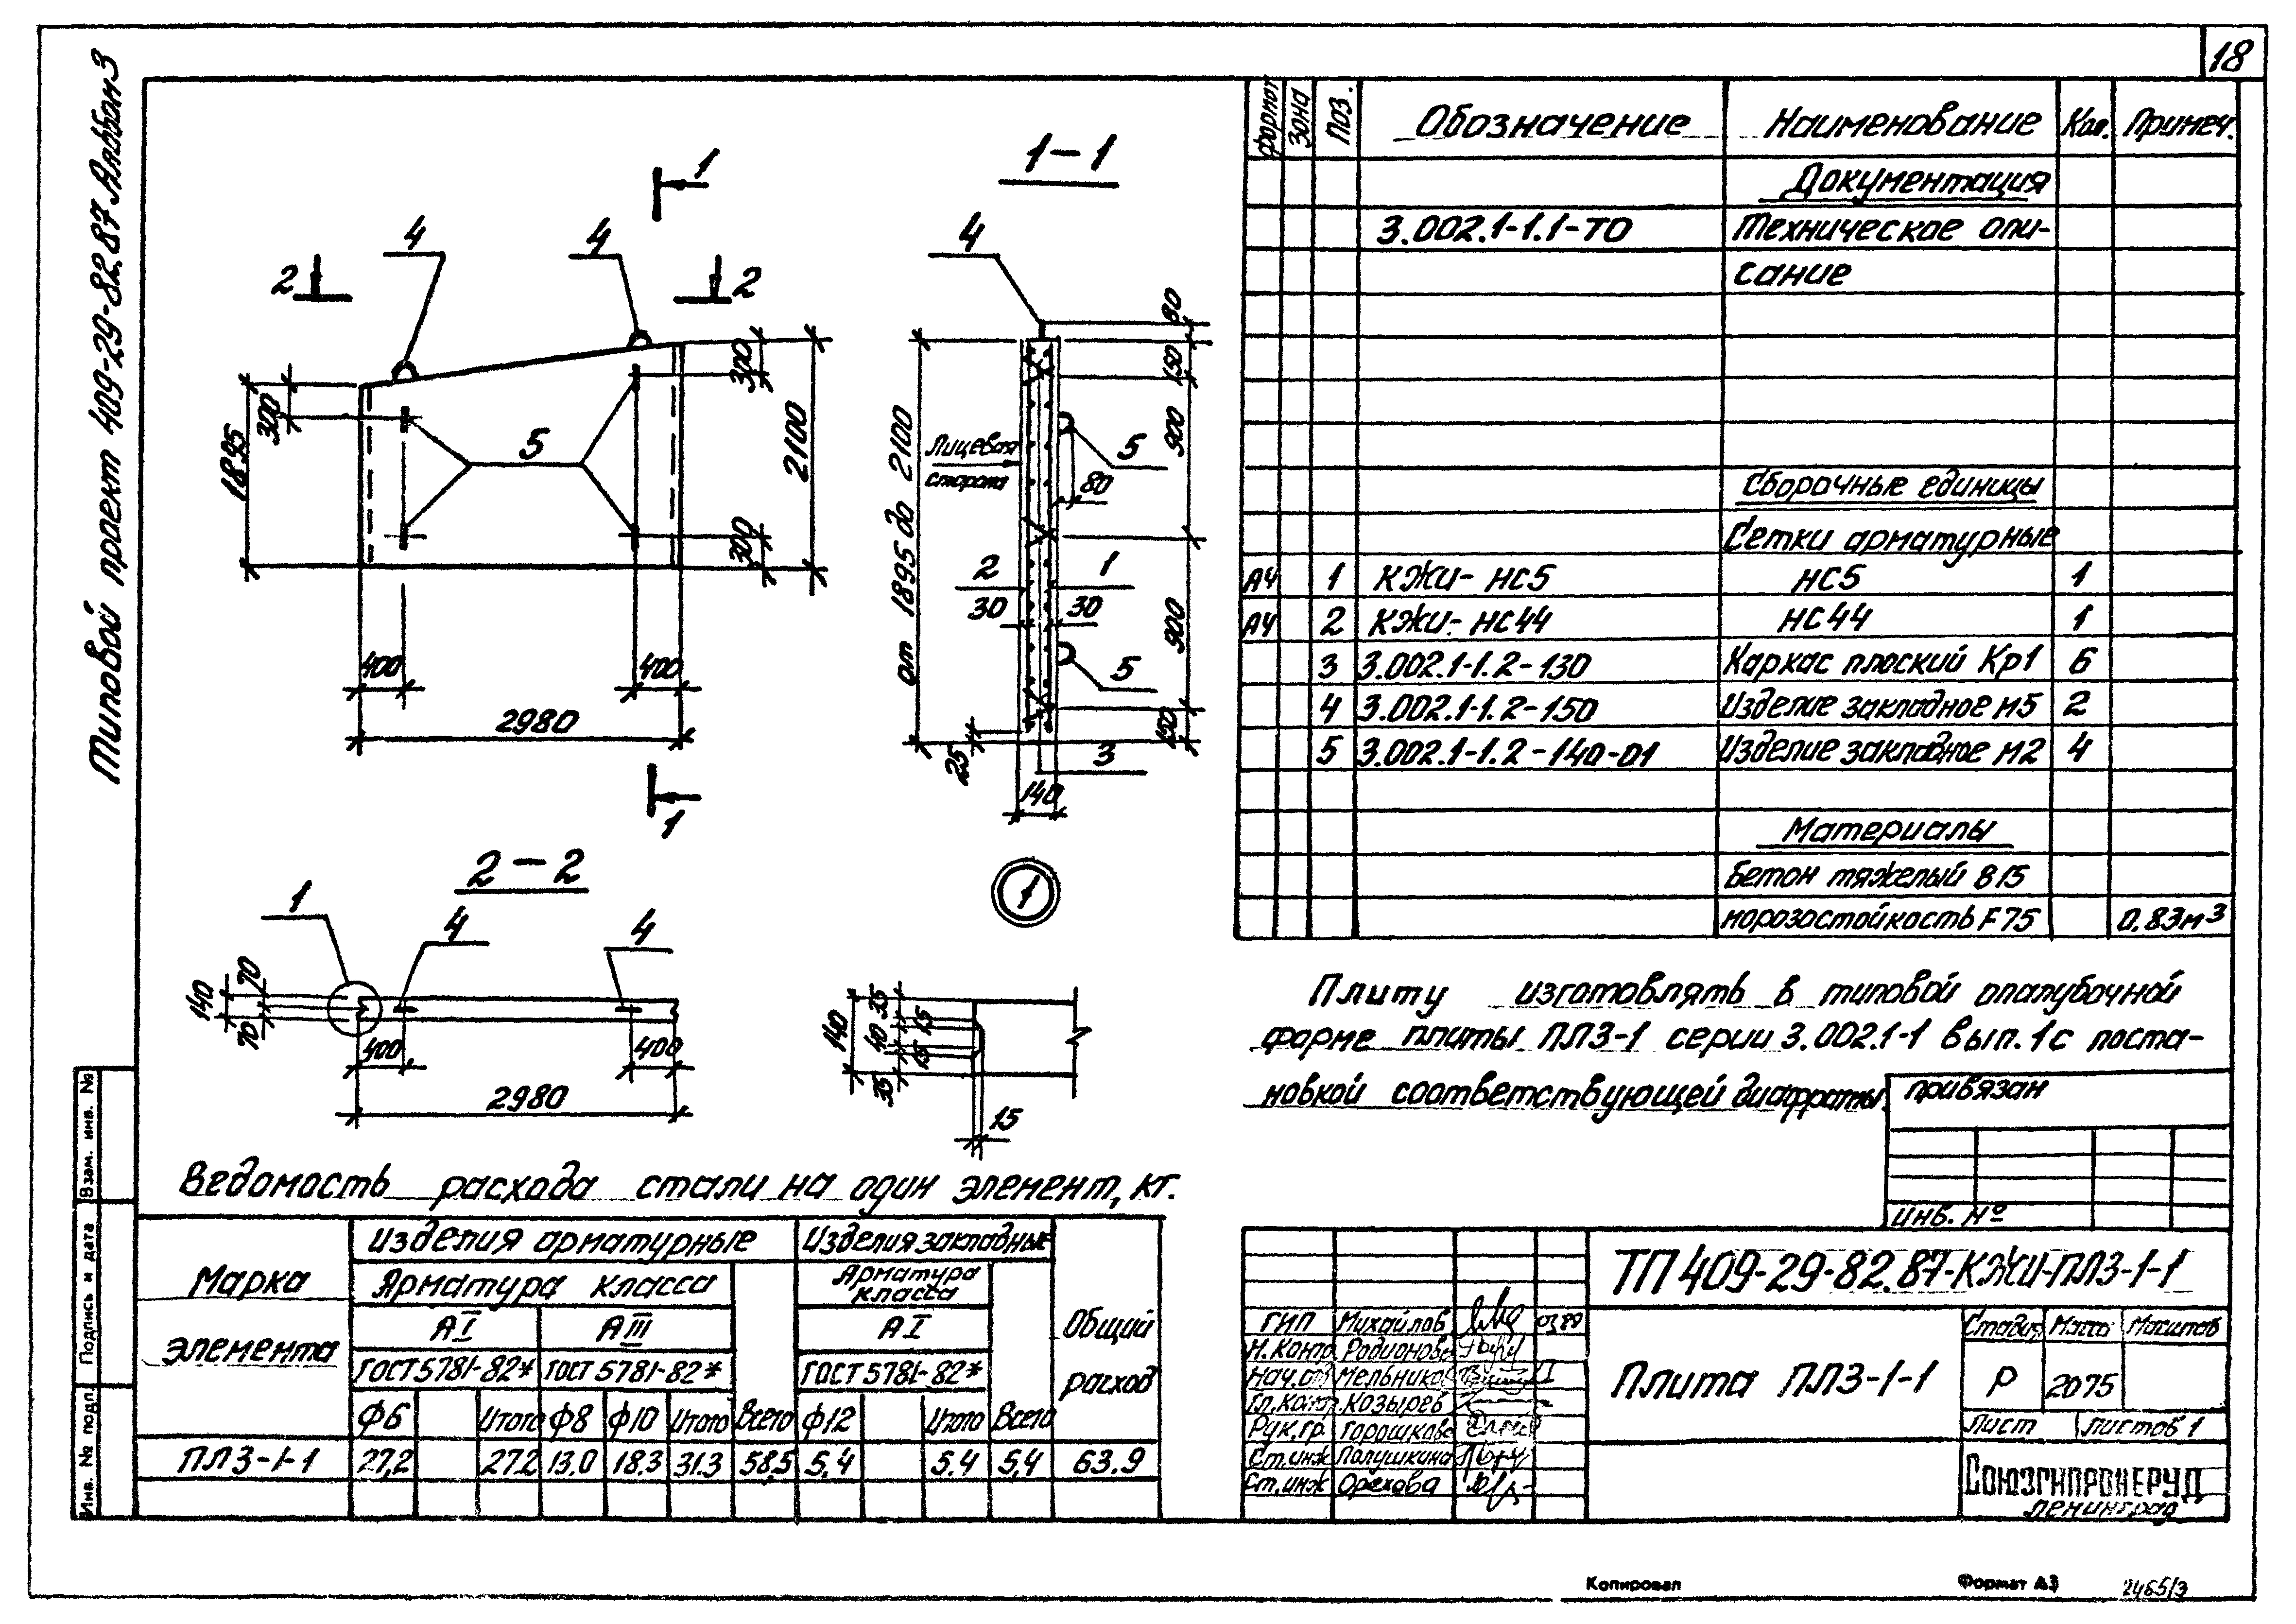 18
Типовой проект 409-29-82.87 Альбом 3
1
1-1
4
4
4
2
2
80
300
300
150
1895
5
2100
от 1895 до 2100
Лицевая
сторона
5
900
80
300
2
1
30
30
900
400
400
5
2980
150
25
3
140
1
2-2
1
1
4
4
140
70
70
400
400
2980
140
35
15
40
15
35
15
Формат
Зона
Поз.
Обозначение
Наименование
Кол.
Примеч.
Документация
3.002.1-1.1-ТО Техническое опи-
сание
Сборочные единицы
Сетки арматурные
А4 1 КЖИ-НС5 НС5 1
А4 2 КЖИ-НС44 НС44 1
3 3.002.1-1.2-130 Каркас плоский Кр1 6
4 3.002.1-1.2-150 Изделие закладное М5 2
5 3.002.1-1.2-140-01 Изделие закладное М2 4
Материалы
Бетон тяжелый В15
морозостойкость F75 0.83м3
Плиту изготовлять в типовой опалубочной
форме плиты ПЛ3-1 серии 3.002.1-1 вып.1 с поста-
новкой соответствующей диафрагмы.
Привязан
Инв. №
Ведомость расхода стали на один элемент, кг.
Марка
элемента
Изделия арматурные
Изделия закладные
Общий
расход
Арматура класса
Арматура
класса
АI
АIII
АI
ГОСТ 5781-82*
ГОСТ 5781-82*
ГОСТ 5781-82*
Ф6 Итого Ф8 Ф10 Итого Всего Ф12 Итого Всего
ПЛ3-1-1 27,2 27.2 13.0 18.3 31.3 58,5 5.4 5.4 5,4 63.9
ТП 409-29-82.87-КЖИ-ПЛ3-1-1
ГИП Михайлов
Н.Контр Родионова
Нач.отд Мельников
Гл.констр. Козырев
Рук.гр. Горошкова
Ст.инж Полушкина
Ст.инж Орехова
Плита ПЛ3-1-1
Стадия Масса Масштаб
Р 2075
Лист Листов 1
СОЮЗГИПРОНЕРУД
Ленинград
Взам. инв. №
Подпись и дата
Инв. № подл.
Копировал
Формат А3
2465/3